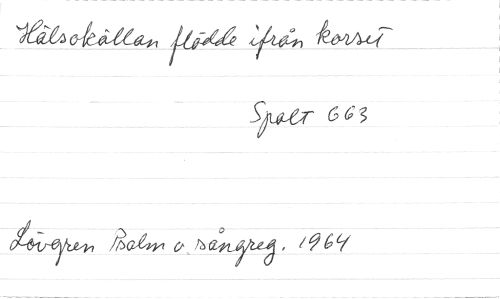 Hälsokällan flödde ifrån korset
Spalt 663
Lövgren Psalm o. sångreg. 1964